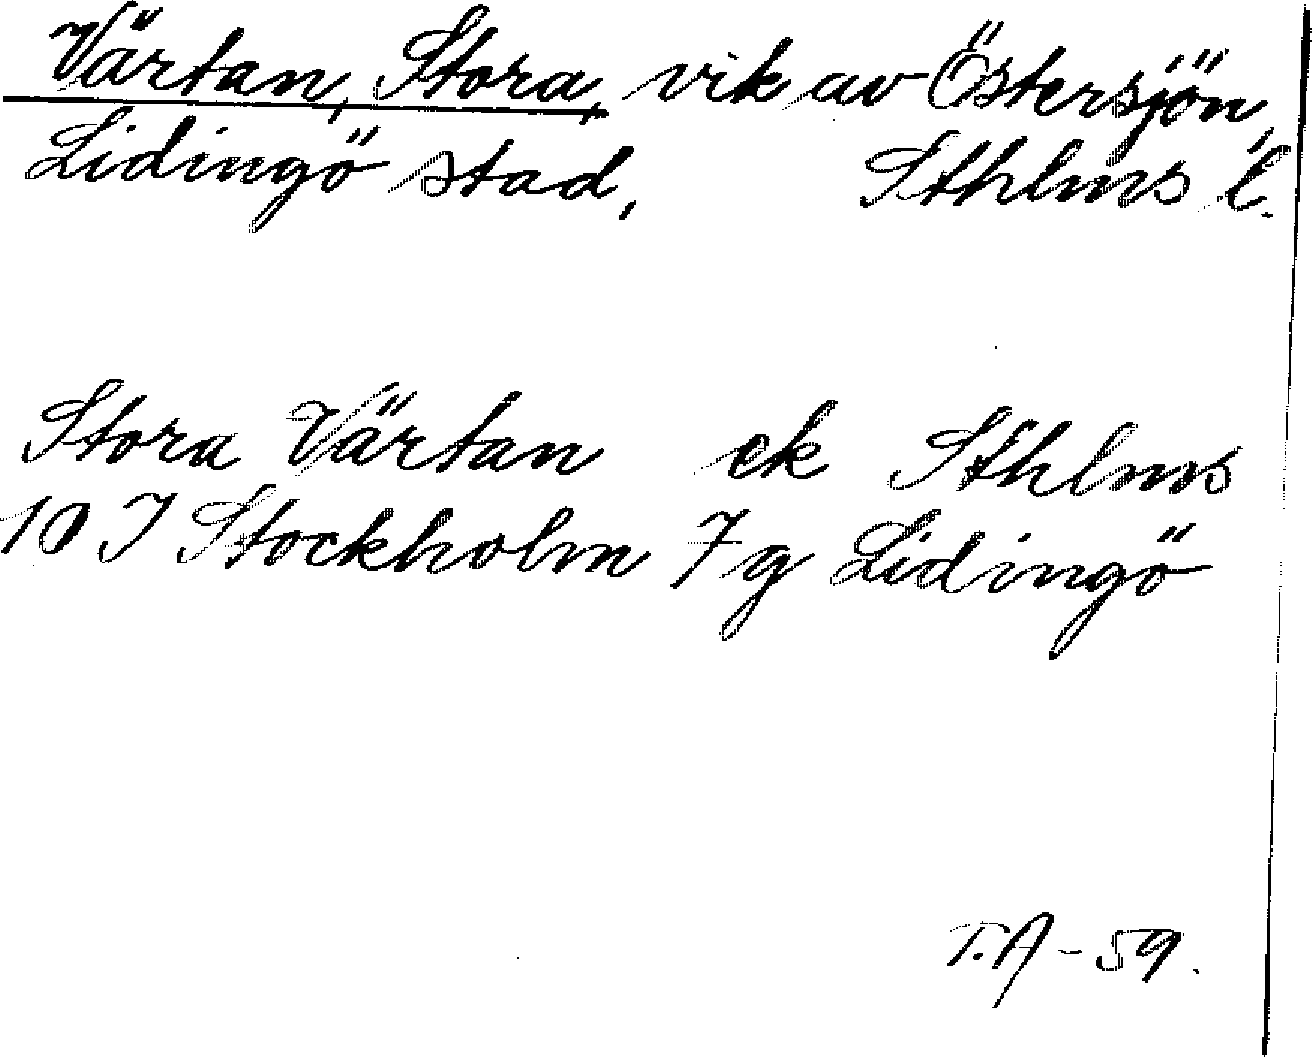 Värtan, Stora, vik av Östersjön,
Lidingö stad, Sthlms l.
Stora Värtan ek Sthlms
10 I Stockholm 7 g Lidingö
T.A - 59.